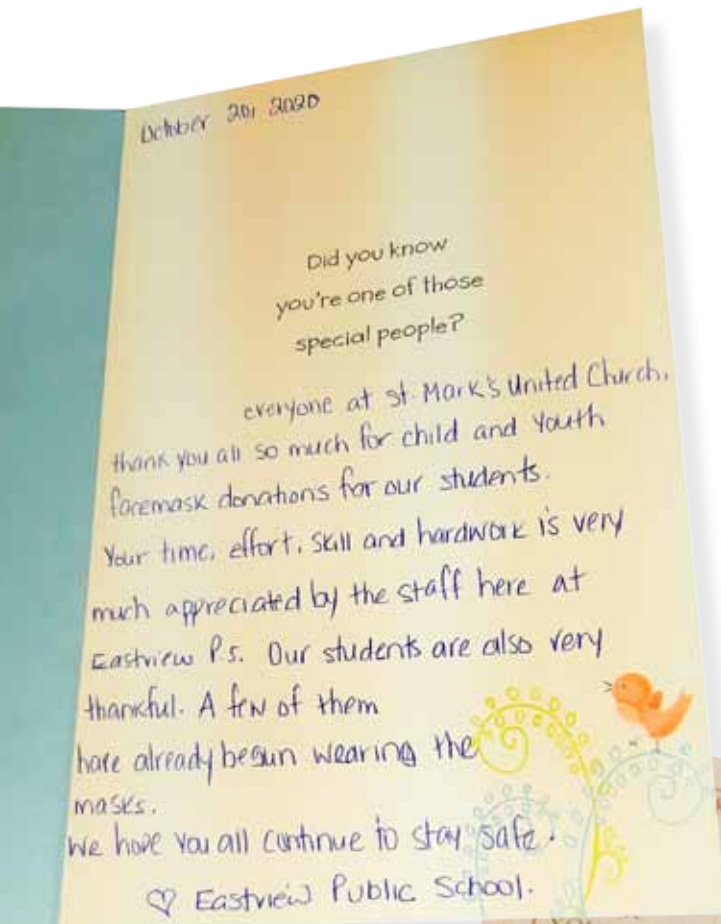 October 20, 2020
Did you know
you're one of those
special people?
everyone at st. Mark's United Church,
thank you all so much for child and Youth
facemask donations for our students.
Your time, effort, skill and hardwork is very
much appreciated by the staff here at
Eastview P.s. Our students are also very
thankful. A few of them
have already begun wearing the
masks.
We hope You all continue to stay safe.
♡ Eastview Public School.